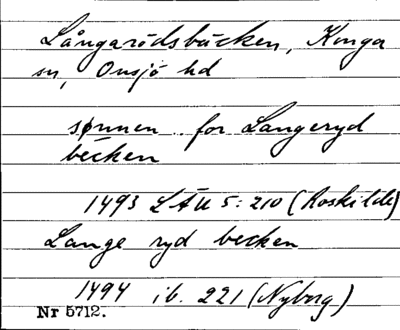 Långarödsbäcken, Konga
sn, Onsjö hd
sønnen for Langeryd
becken
1493 LÄU 5:210 (Roskilde)
Lange ryd becken
1494 ib. 221 (Nyborg)
Nr 5712.